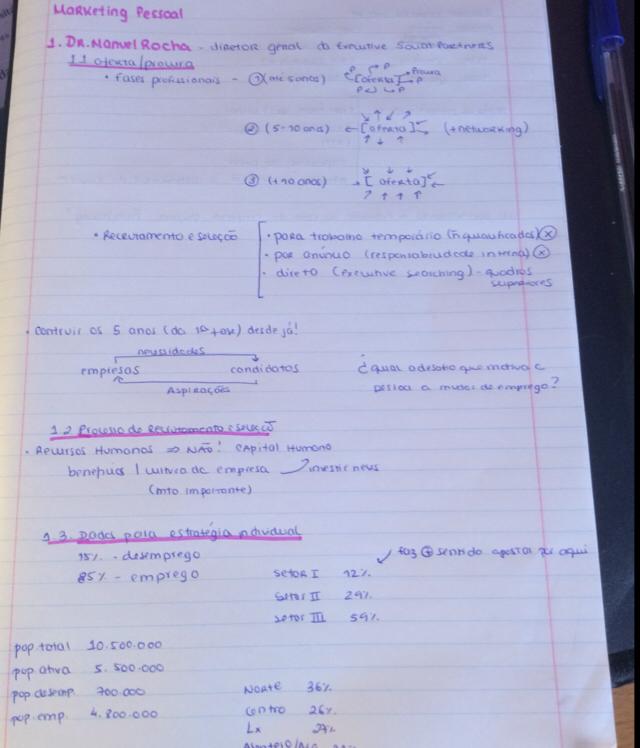 Marketing Pessoal
1. DR. Manuel Rocha - diretor geral da Executive Sourn Partners
1.1 oferta/procura
• fases profissionais - ① (até 5 anos) [oferta] Procura
P P P P P
② (5-10 anos) ← [oferta] (+networking)
③ (+10 anos) → [oferta] ←
• Recrutamento e seleção
• para trabalho temporário (ñ qualificados) ⓧ
• por anúncio (responsabilidade interna) ⓧ
• direto (executive searching) - quadros
superiores
• Contruir os 5 anos (da 1ª fase) desde já!
necessidades
empresas candidatos
Aspirações
¿ qual o desafio que motiva a
pessoa a mudar de emprego?
1.2 Processo de Recrutamento e seleção
• Recursos Humanos ⇒ NÃO! Capital Humano
benefícios / cultura da empresa investir neles
(mto importante)
1.3. Dados para estratégia individual
15% - desemprego
85% - emprego
faz ⊕ sentido apostar por aqui
Setor I 12%
Setor II 29%
Setor III 59%
pop. total 10.500.000
pop. ativa 5.500.000
pop. desemp. 700.000
pop. emp. 4.800.000
Norte 36%
Centro 26%
Lx 27%